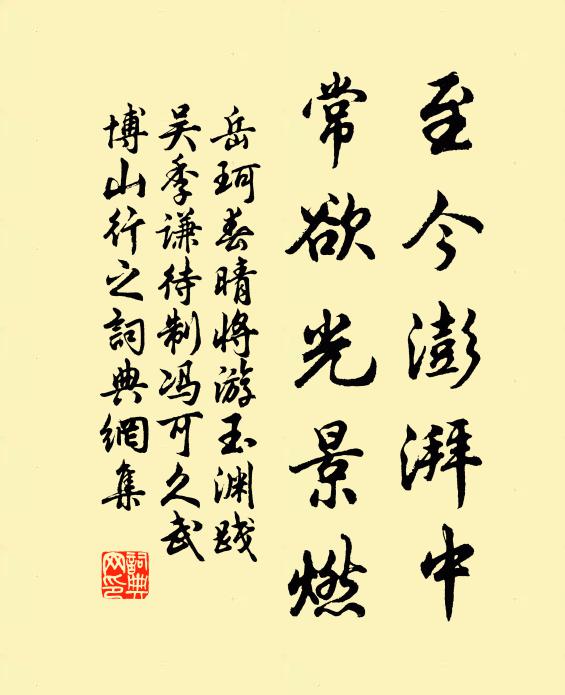 至今澎湃中
常欲光景燃
岳珂春晴将游玉渊践
吴季谦待制冯可久武
博山行之詞典網集
詞典網印